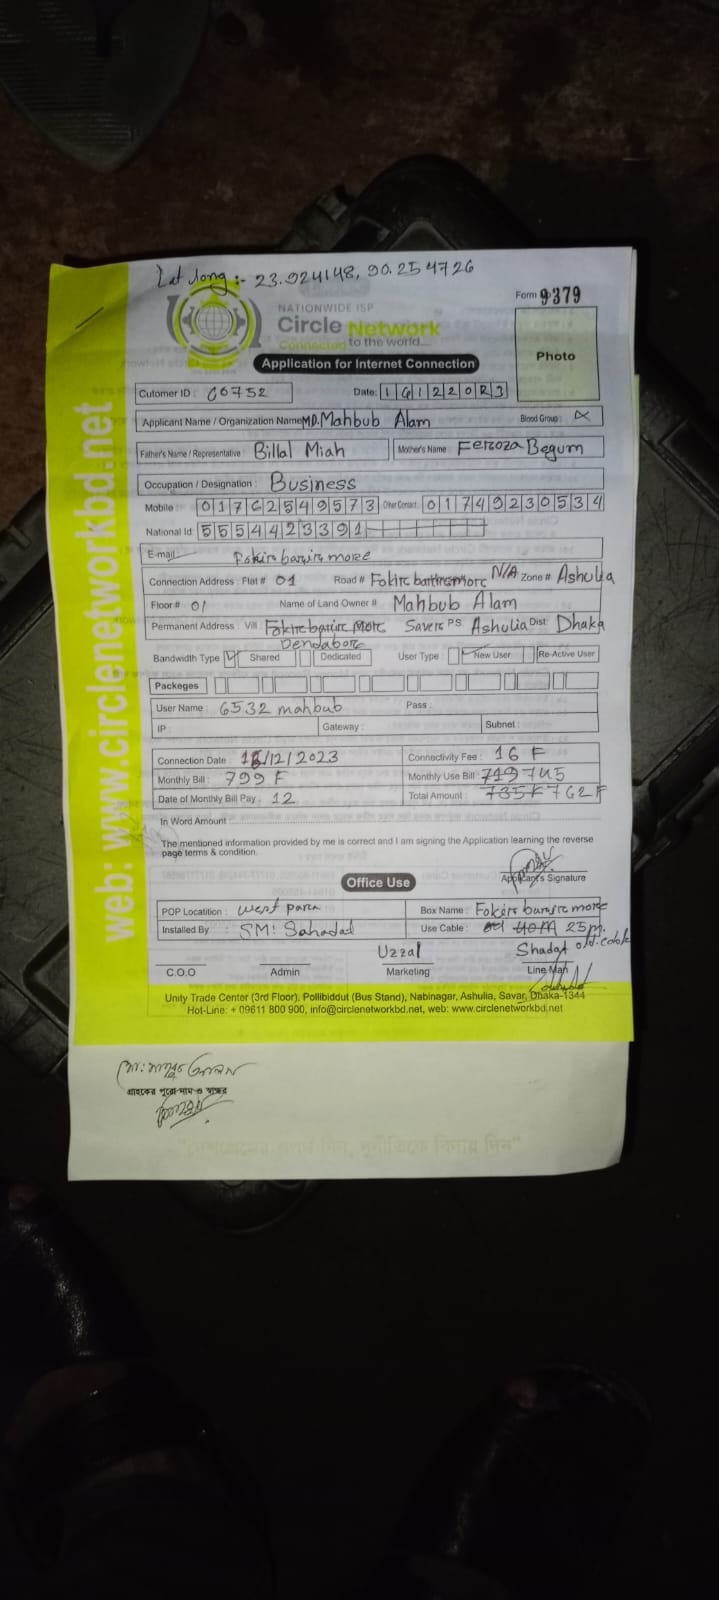 Lat long :- 23.924148, 90.254726
Form 9379
NATIONWIDE ISP
Circle Network
Connecting to the world....
Photo
Application for Internet Connection
Cutomer ID : 06752 Date: 16122023
Applicant Name / Organization Name MD. Mahbub Alam Blood Group : X
Father's Name / Representative : Billal Miah Mother's Name : Feroza Begum
Occupation / Designation : Business
Mobile 01762549573 Other Contact 01749230534
National Id: 5554423391
E-mail Fokir barir more
Connection Address : Flat # 01 Road # Fokir barir more N/A Zone # Ashulia
Floor # 01 Name of Land Owner # Mahbub Alam
Permanent Address : Vill Fokir barir More Saver PS. Ashulia Dist: Dhaka
Dendabor
Bandwidth Type Shared Dedicated User Type : New User Re-Active User
Packeges
User Name : 6532 mahbub Pass :
IP : Gateway : Subnet :
Connection Date : 16/12/2023 Connectivity Fee : 16 F
Monthly Bill : 799 F Monthly Use Bill : 745
Date of Monthly Bill Pay : 12 Total Amount : 762F
In Word Amount
The mentioned information provided by me is correct and I am signing the Application learning the reverse
page terms & condition.
Applicant's Signature
Office Use
POP Locatition : west para Box Name : Fokir barir more
Installed By : SM: Sahadat Use Cable : 40M 25m. old
Uzzal Shadat
C.O.O Admin Marketing Line Man
Unity Trade Center (3rd Floor), Pollibiddut (Bus Stand), Nabinagar, Ashulia, Savar, Dhaka-1344
Hot-Line: + 09611 800 900, info@circlenetworkbd.net, web: www.circlenetworkbd.net
web: www.circlenetworkbd.net
মো: মাহবুব আলম
গ্রাহকের পুরো নাম ও স্বাক্ষর